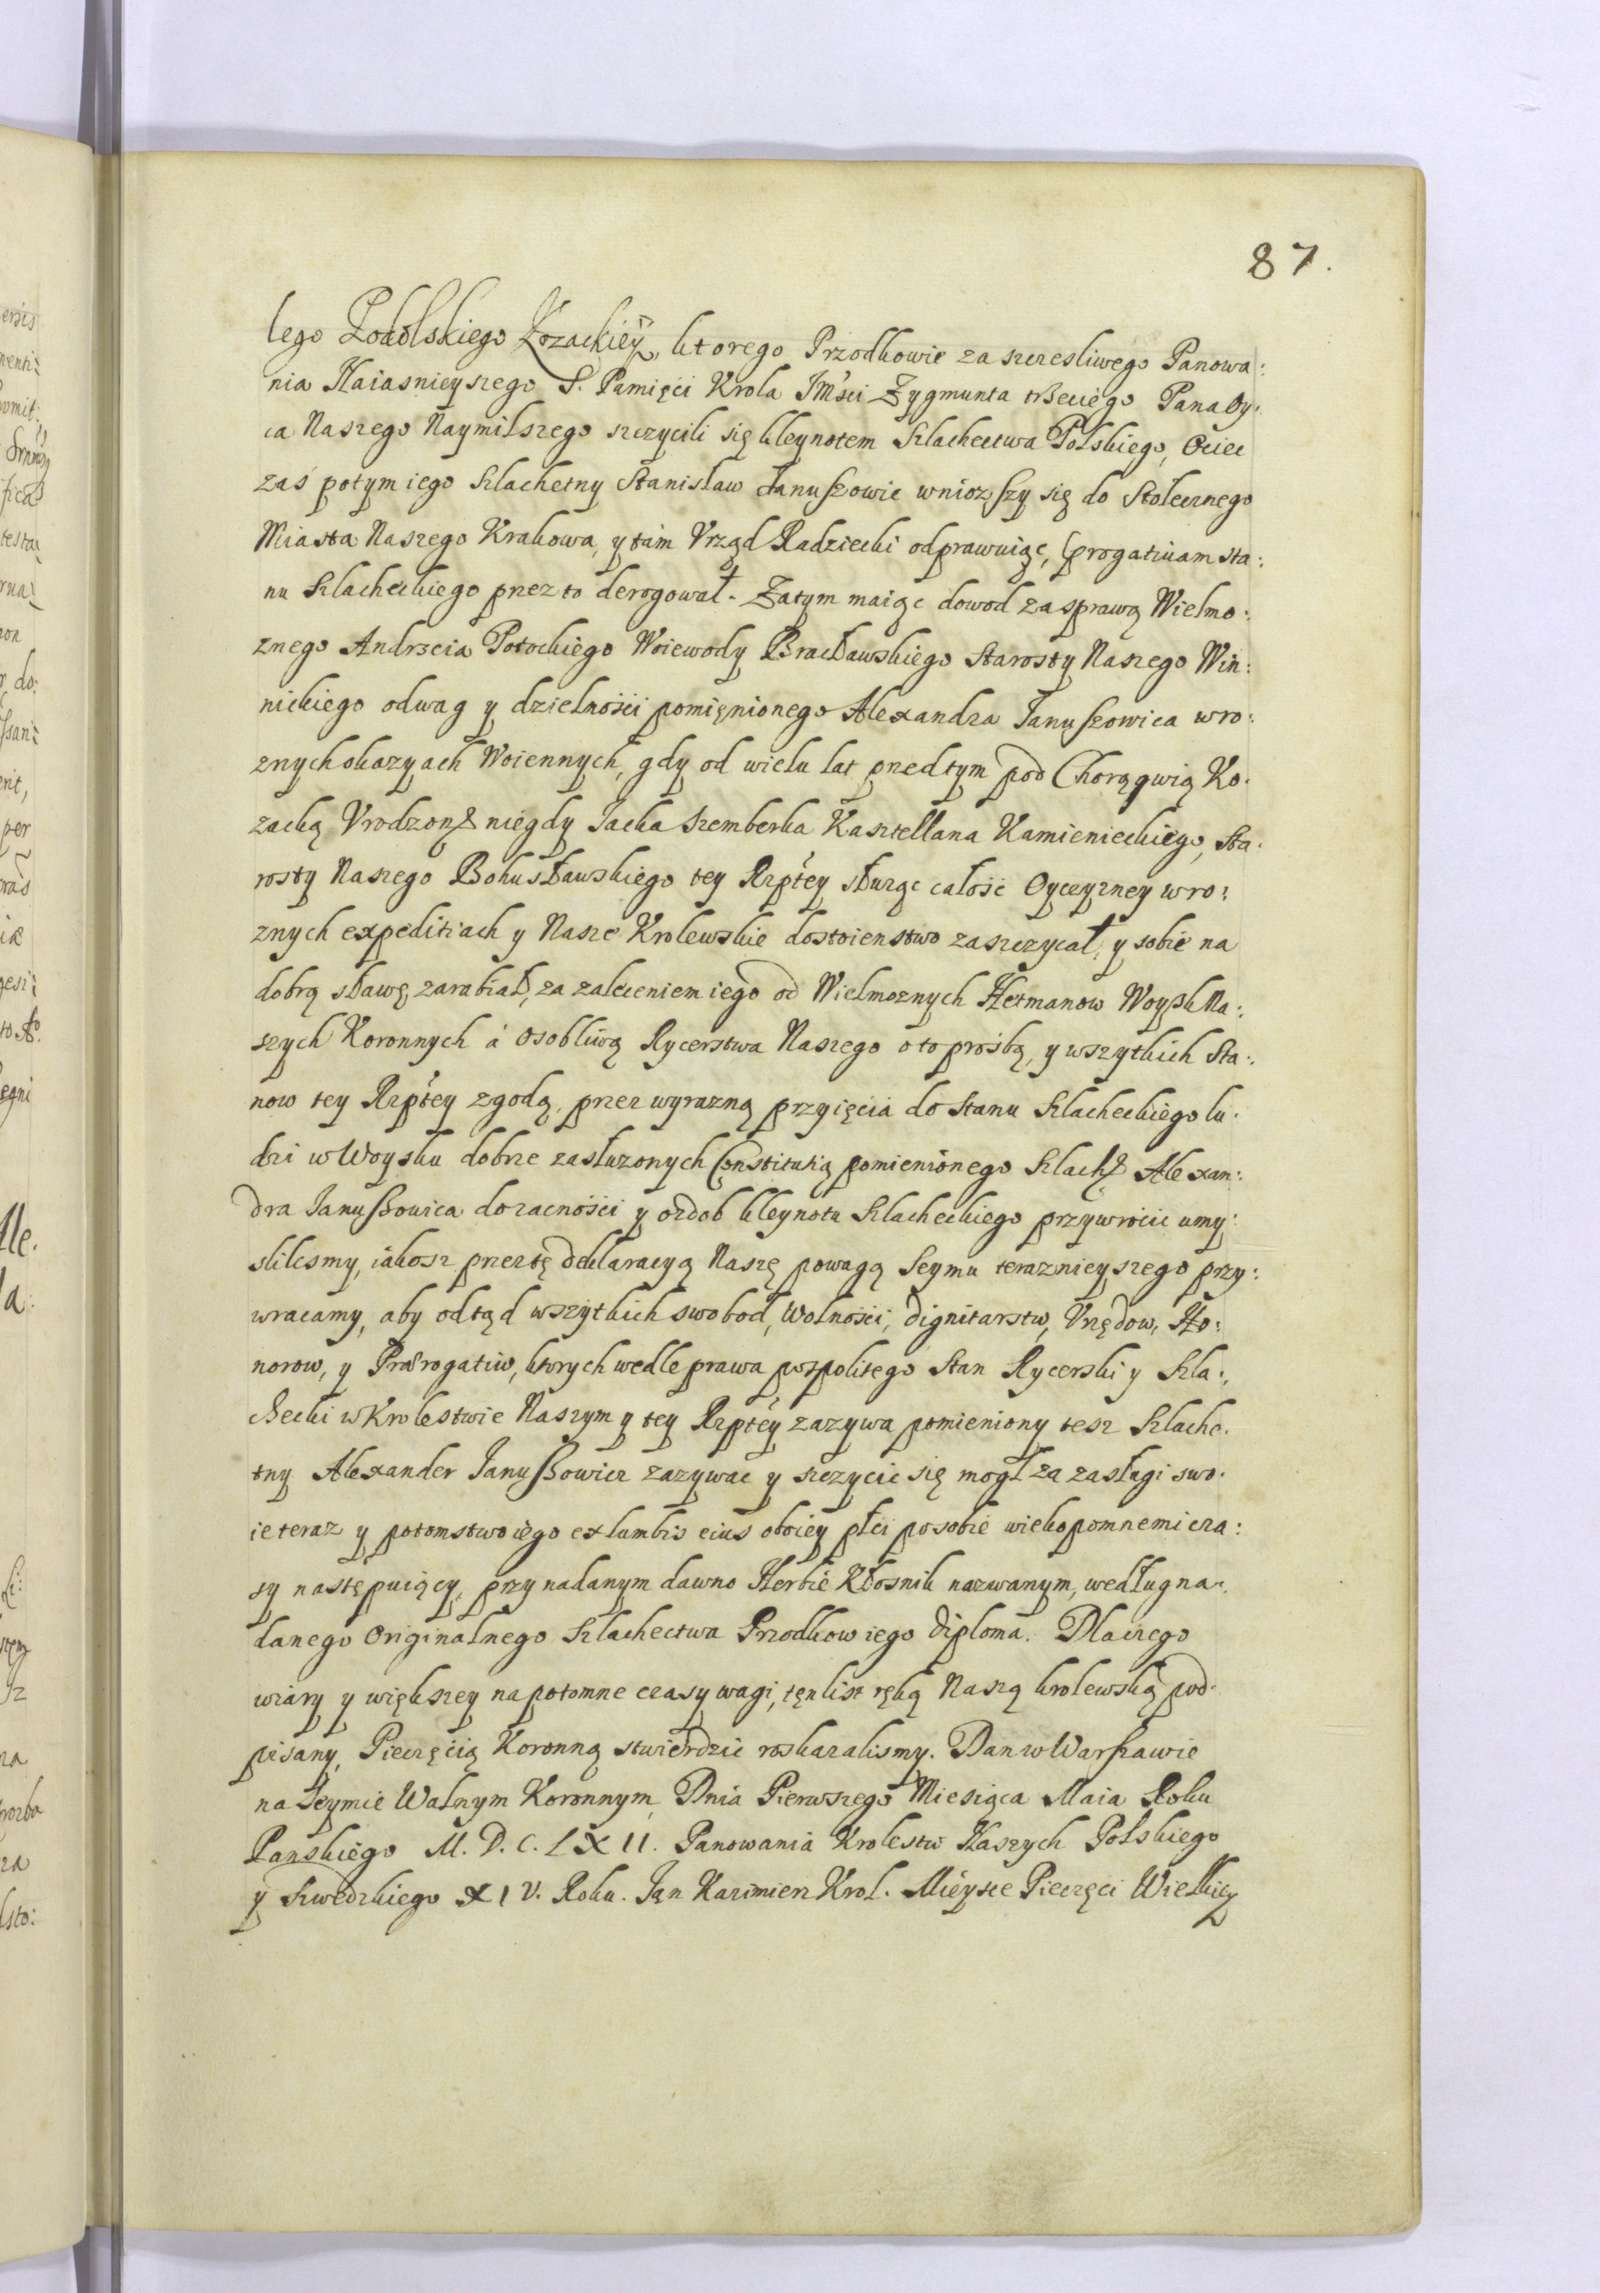 87.
lego Podolskiego Kozackiey, ktorego Przodkowie za szczesliwego Panowa:
nia Naiasnieyszego S. Pamięci Krola JMsci Zygmunta trzeciego Pana Oy:
ca Naszego Naymilszego szczycili się kleynotem Szlachectwa Polskiego, Ociec
zaś potym iego Szlachetny Stanisław Januszowic wniozszy się do Stołecznego
Miasta Naszego Krakowa, y tam Vrząd Radziecki odprawuiąc, progativam sta:
nu Szlacheckiego przez to derogował. Zatym maiąc dowod za sprawą Wielmo:
znego Andrzeia Potockiego Woiewody Bracławskiego Starosty Naszego Win:
nickiego odwag y dzielności pomięnionego Alexandra Januszowica wro:
znych okazyach Woiennych, gdy od wielu lat przedtym pod Chorągwią Ko.
zacką Vrodzon͠ niegdy Jacka Szemberka Kasztellana Kamienieckiego, Sta.
rosty Naszego Bohusławskiego tey Rzptey służąc całość Oyczyzney wro:
znych expeditiach y Nasze Krolewskie dostoienstwo zaszczycał, y sobie na
dobrą sławę zarabiał, za zaleceniem iego od Wielmoznych Hetmanow Woysk Na:
szych Koronnych á osobliwą Rycerstwa Naszego o to prośbą, y wszytkich Sta:
now tey Rzptey zgodą, przez wyrazną przyięcia do Stanu Szlacheckiego lu.
dzi w Woysku dobrze zasłuzonych Constitutią pomienionego Szlach͠ Alexan:
dra Januszowica do zacności y ozdob kleynotu Szlacheckiego przywrocic umy:
slilismy, iakosz przez tę deklaracyą Naszę powagą Seymu teraznieyszego przy:
wracamy, aby odtąd wszytkich swobod, Wolności, dignitarstw, Vrzędow, Ho:
norow, y Praerogatiw, ktorych wedle prawa pospolitego Stan Rycerski y Szla:
checki w Krolestwie Naszym y tey Rzptey zazywa pomieniony tesz Szlache.
tny Alexander Januszowicz zazywac y szczycic się mogł za zasługi swo.
ie teraz y potomstwo iego ex lumbis eius oboiey płci po sobie wiekopomnemi cza:
sy następuiący, przy nadanym dawno Herbie Kłosnik nazwanym, według na:
danego Originalnego Szlachectwa Przodkow iego diploma. Dla czego
wiary y większey na potomne czasy wagi, tęn list ręką Naszą krolewską pod.
pisany, Pieczęcią Koronną stwierdzic roskazalismy. Dan w Warszawie
na Seymie Walnym Koronnym Dnia Pierwszego Miesiąca Maia Roku
Panskiego M. D. C. LXII. Panowania Krolestw Naszych Polskiego
y Szwedzkiego XIV. Roku. Jan Kazimierz Krol. Mieysce Pieczęci Wielkiey